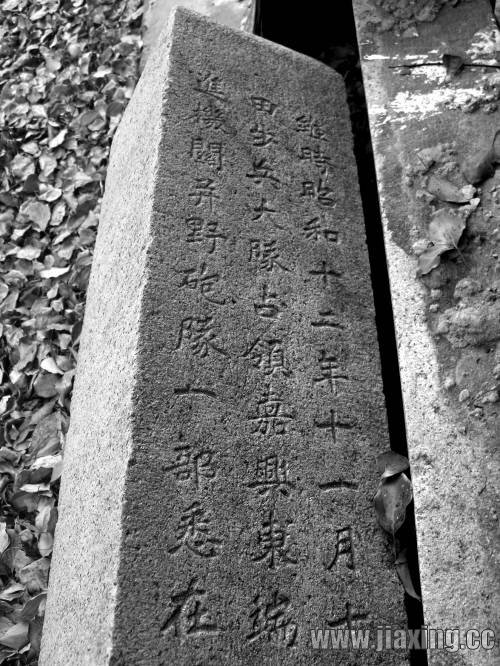 維時昭和十二年十一月十
田步兵大隊占領嘉興東端
進機關并野砲隊一部悉在
www.jiaxing.cc